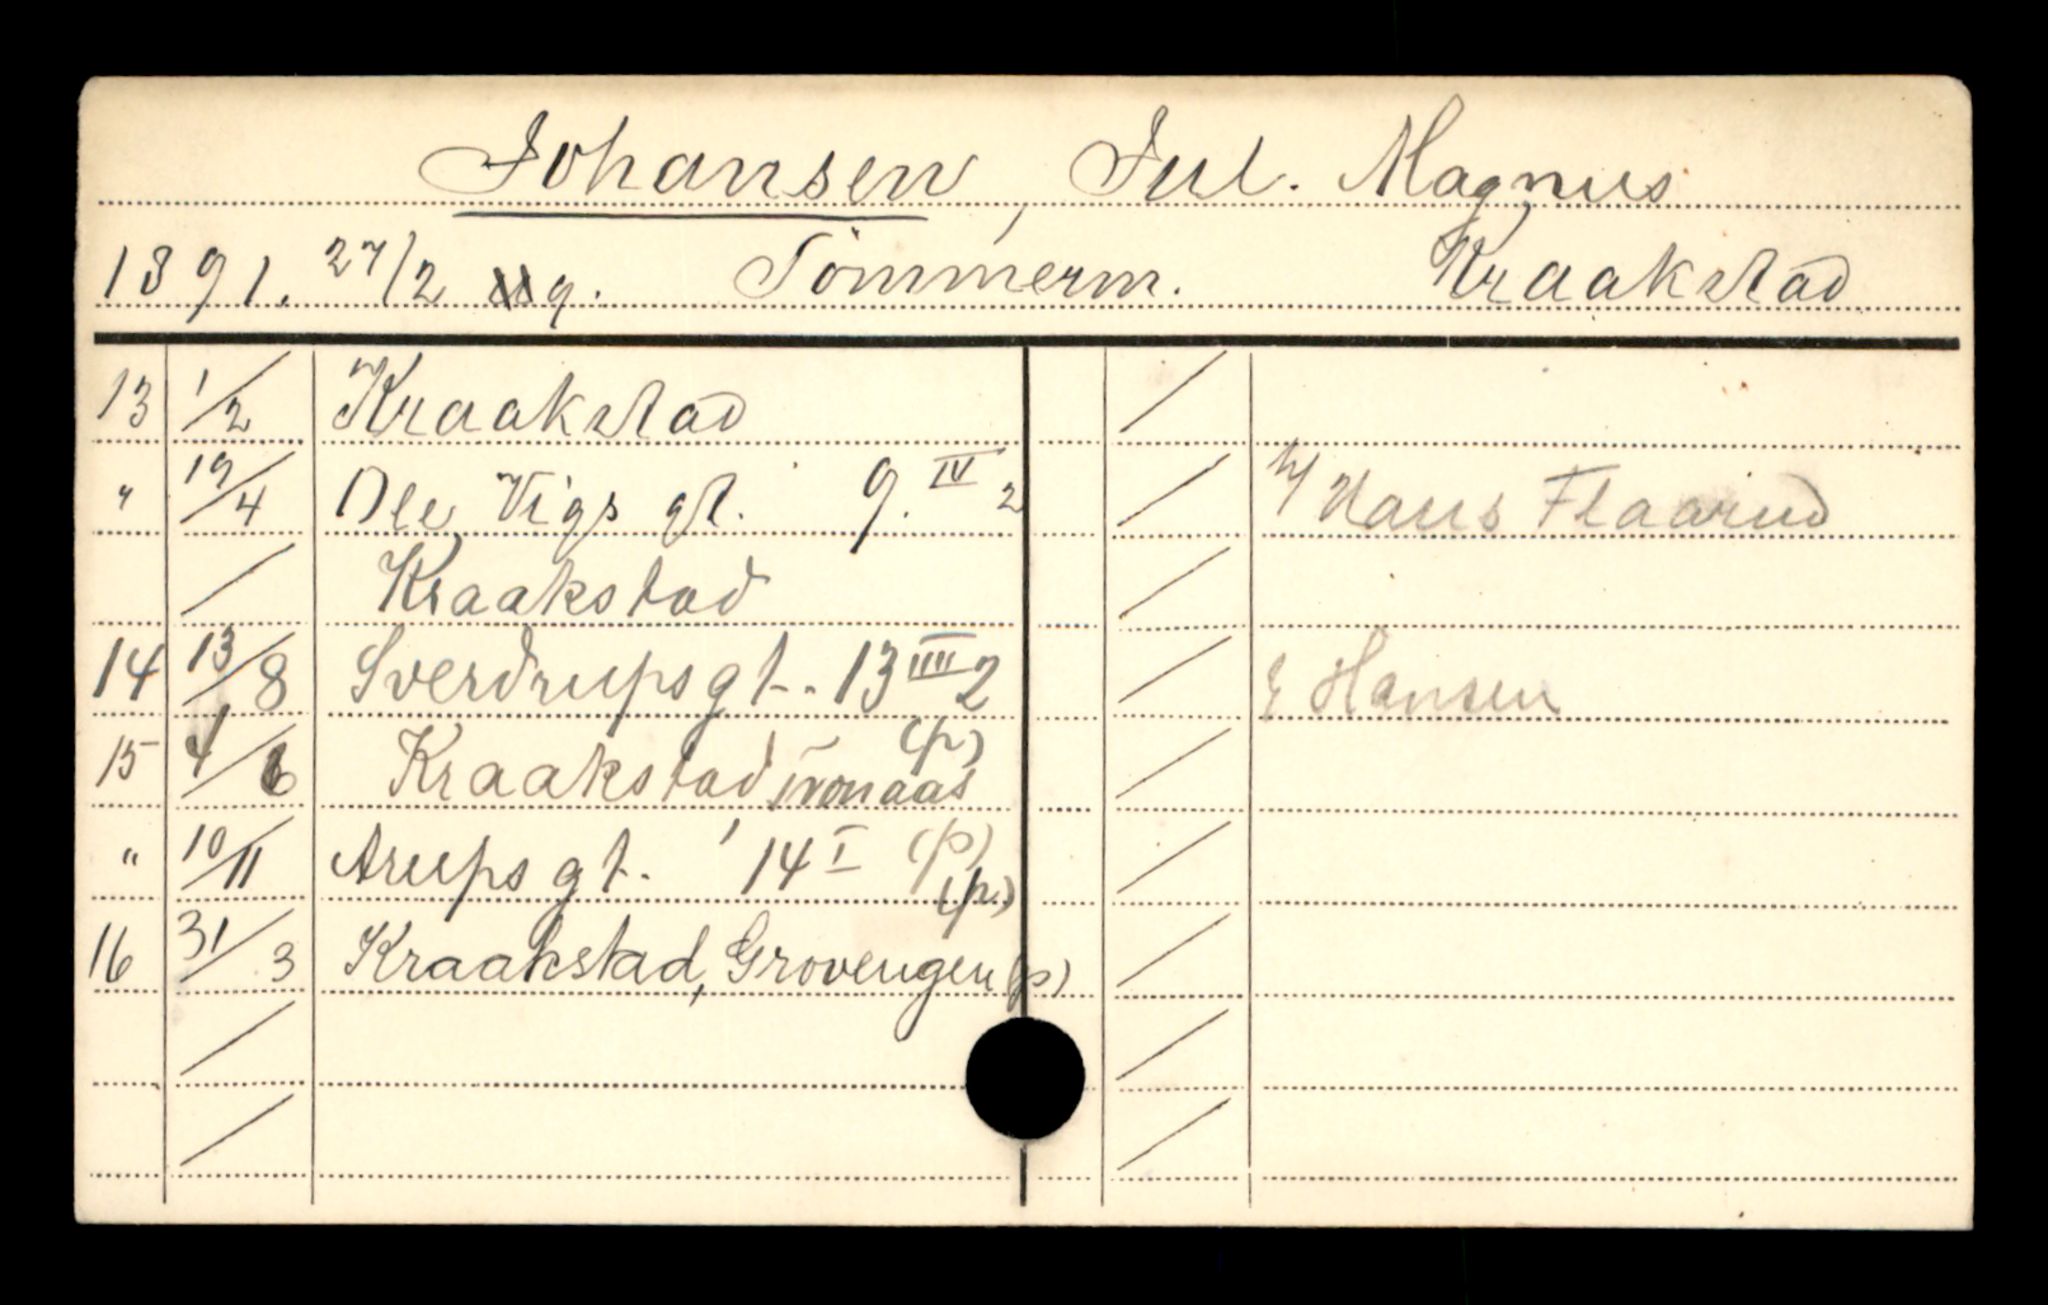 Johansen, Jul. Magnus
1891. 27/2 g. Tömmerm. Kraakstad
13 1/2 Kraakstad
" 19/4 Ole Vigs gt. 9. IV 2 Hans Flaarud
Kraakstad
14 13/8 Sverdrupsgt. 13 IIII 2 Hansen
15 4/6 Kraakstad (p)
" 10/11 Arups gt. 14 I (p)
(p.)
16 31/3 Kraakstad, Grovengen (p)